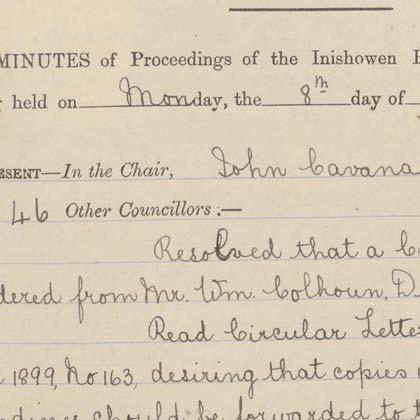 MINUTES of Proceedings of the Inishowen
held on Monday, the 8th day of
ESENT—In the Chair, John Cavana
46 Other Councillors :—
Resolved that a
dered from Mr. Wm. Colhoun, D.
Read Circular Lette
1899, No 163, desiring that copies
should be forwarded to